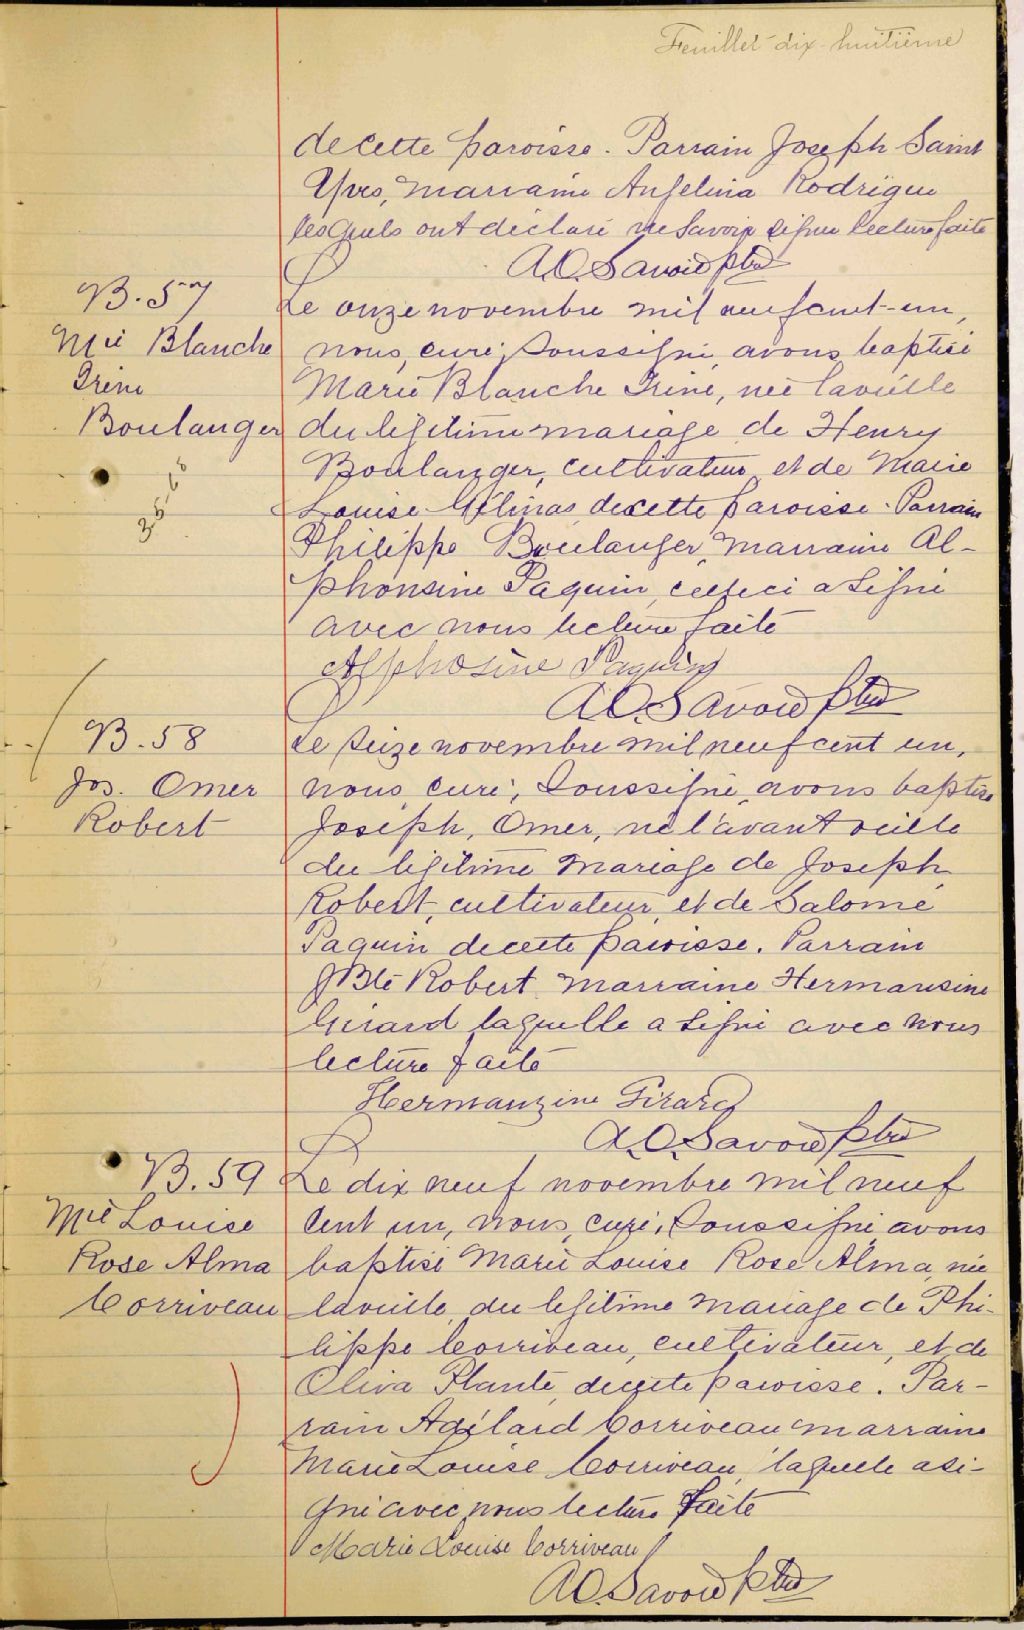 Feuillet dix-huitième
de cette paroisse. Parrain Joseph Saint
Yves, marraine Angelina Rodrigue
lesquels ont déclaré ne savoir signer lecture faite
A.O. Savoie ptre
B. 57
Mie Blanche
Irène
Boulanger
Le onze novembre mil neuf cent-un,
nous, curé, soussigné, avons baptisé
Marie Blanche Irène, née la veille
du légitime mariage de Henry
Boulanger, cultivateur, et de Marie
Louise Gélinas de cette paroisse. Parrain
Philippe Boulanger, marraine Al-
phonsine Paquin, celle ci a signé
avec nous lecture faite
Alphosine Paquin
A.O. Savoie ptre
B. 58
Jos. Omer
Robert
Le seize novembre mil neuf cent un,
nous, curé, soussigné, avons baptisé
Joseph, Omer, né l'avant veille
du légitime mariage de Joseph
Robert, cultivateur, et de Salomé
Paquin de cette paroisse. Parrain
J Bte Robert, marraine Hermansine
Girard laquelle a signé avec nous
lecture faite
Hermanzine Girard
A.O. Savoie ptre
B. 59
Mie Louise
Rose Alma
Corriveau
Le dix neuf novembre mil neuf
cent un, nous, curé, soussigné, avons
baptisé Marie Louise Rose Alma, née
la veille, du légitime mariage de Phi-
lippe Corriveau, cultivateur, et de
Oliva Plante, de cette paroisse. Par-
rain Adélard Corriveau marraine
Marie Louise Corriveau, laquelle a si-
gné avec nous lecture faite
Marie Louise Corriveau
A.O. Savoie ptre